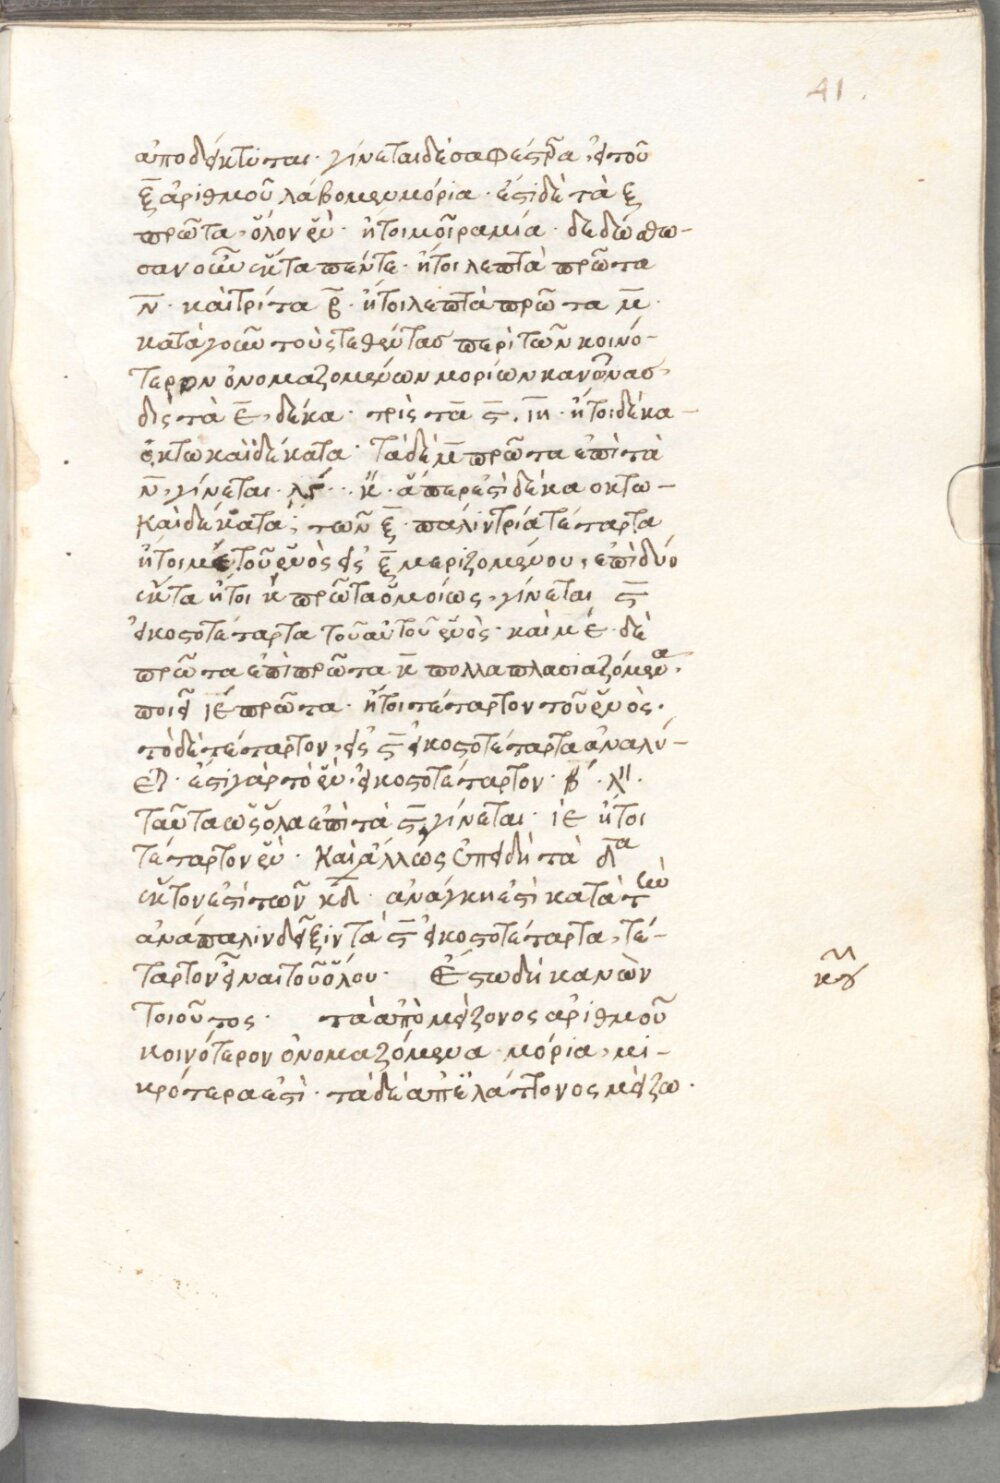 41.
ἀποδείκτυται· γίνεται δὲ σαφέστερα, εἰ τοῦ
ξ̅ ἀριθμοῦ λάβομεν μόρια· ἐστὶ δὲ τὰ ξ
πρῶτα, ὅλον ἓν· ἤτοι μοῖρα μία· δεδώσθω-
σαν οὖν ἕκτα πέντε· ἤτοι λεπτὰ πρῶτα
ν̅· καὶ τρίτα β̅· ἤτοι λεπτὰ πρῶτα μ̅·
κατὰ γοῦν τοὺς τεθέντας περὶ τῶν κοινό-
τερον ὀνομαζομένων μορίων κανόνας,
δὶς τὰ ε̅, δέκα· τρὶς τὰ ς̅, ι̅η̅· ἤτοι δέκα-
ὀκτωκαιδέκατα· τὰ δὲ μ̅ πρῶτα ἐπὶ τὰ
ν̅, γίνεται· λγ· κ· ἅπερ ἐστὶ δέκα οκτω-
καιδέκατα· τῶν ξ̅· πάλιν τρία τέταρτα
ἤτοι με τοῦ ἑνὸς εἰς ξ̅ μεριζομένου, ἐπὶ δύο
ἕκτα ἤτοι κ πρῶτα ὁμοίως, γίνεται ς̅
εἰκοστοτέταρτα τοῦ αὐτοῦ ἑνὸς· καὶ με· δὲ
πρῶτα ἐπὶ πρῶτα κ̅ πολλαπλασιαζόμενα,
ποιεῖ ιε πρῶτα· ἤτοι τέταρτον τοῦ ἑνὸς·
τὸ δὲ τέταρτον, εἰς ς̅ εἰκοστοτέταρτα ἀναλύ-
εται· ἐστὶ γὰρ τὸ ἓν εἰκοστοτέταρτον· β· λ·
ταῦτα ὡς ὅλα ἐπὶ τὰ ς̅, γίνεται· ιε ἤτοι
τέταρτον ἓν· Καὶ ἄλλως ἐπειδὴ τὰ δ̅
ἕκτον ἐστὶ τῶν κ̅δ̅· ἀνάγκη ἐστὶ κατὰ τὸ
ἀνάπαλιν δεῖξιν τὰ ς̅ εἰκοστοτέταρτα, τέ-
ταρτον εἶναι τοῦ ὅλου· Ἔστω δὴ κανὼν
τοιοῦτος· τὰ ἀπὸ μείζονος ἀριθμοῦ
κοινότερον ὀνομαζόμενα μόρια, μι-
κρότερα ἐστὶ· τὰ δὲ ἀπ' ἐλάττονος μείζω·